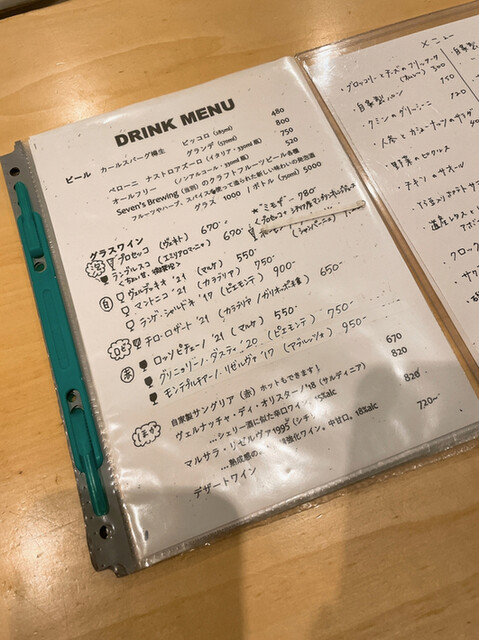 DRINK MENU
ビール カールスバーグ樽生 ピッコロ (285ml) 480
グランデ (570ml) 800
ペローニ ナストロアズーロ (イタリア・330ml 瓶) 750
オールフリー (ノンアルコール・330ml 瓶) 520
Seven's Brewing (仮別) のクラフトフルーツビール各種
フルーツやハーブ、スパイスを使って造られた新しい味わいの発泡酒
グラス 1000 / ボトル (750ml) 5000
グラスワイン
泡 プロセッコ (ヴェネト) 670-
"ミモザ" 980-
ランブルスコ (エミリアロマーニャ) 670-
白 ヴェルディッキオ '21 (マルケ) 550
マントニコ '21 (カラブリア) 750-
ランゲ・シャルドネ '17 (ピエモンテ) 900-
ロゼ チロ・ロザート '21 (カラブリア / ガリオッポ主体) 650-
赤 ロッソピチェーノ '21 (マルケ) 550
グリニョリーノ・ダスティ '20 (ピエモンテ) 750-
モンテプルチアーノ・リゼルヴァ '17 (アブルッツォ) 950-
ほか 自家製サングリア (赤) ホットもできます! 670
ヴェルナッチャ・ディ・オリスターノ'18 (サルディニア) 820
…シェリー酒に似た辛口ワイン。15%alc
マルサラ・リゼルヴァ1995 (シチ 820
…熟成感の 強化ワイン。中甘口。18%alc
デザートワイン 720-
メニュー
・ブロッコリーとチーズのフリッタータ
300
・自家製パン 150
・クミンのグリッシーニ 120
・人参とカシューナッツのサラダ
・野菜のピクルス
・チキン
クロック
・自家製